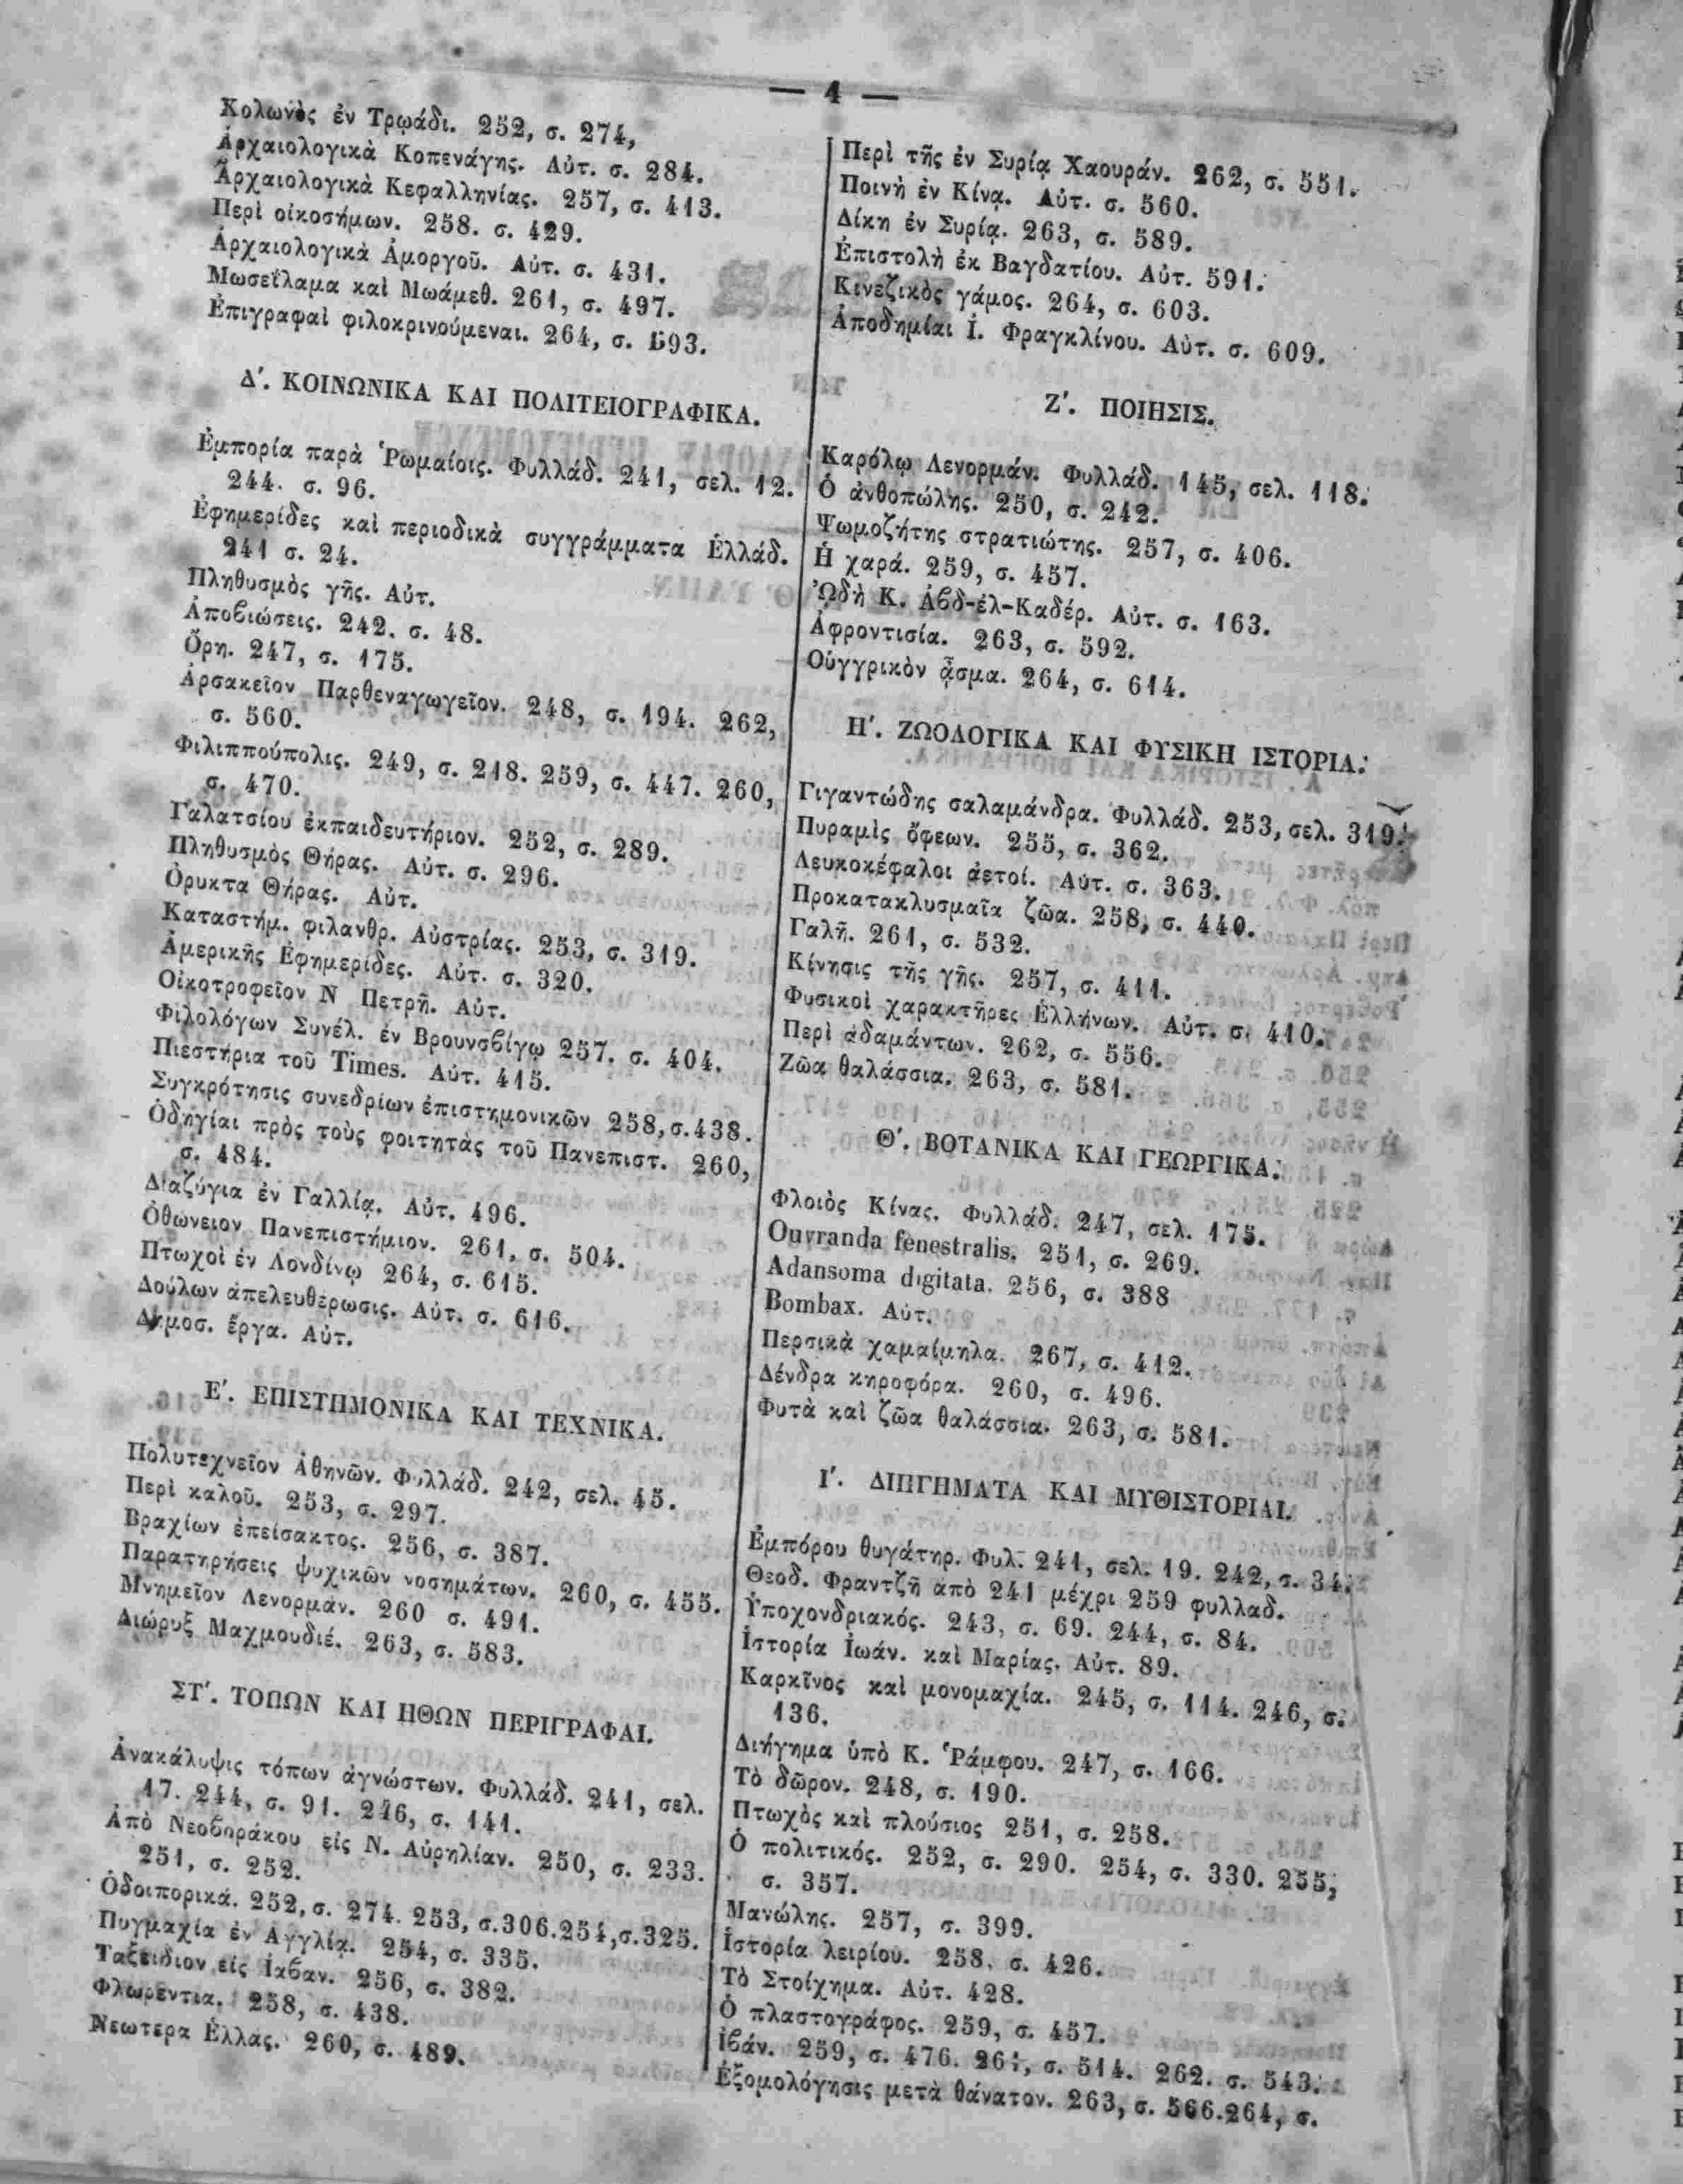 — 4 —
Κολωνὸς ἐν Τρῳάδι. 252, σ. 274,
Ἀρχαιολογικὰ Κοπενάγης. Αὐτ. σ. 284.
Ἀρχαιολογικὰ Κεφαλληνίας. 257, σ. 413.
Περὶ οἰκοσήμων. 258. σ. 429.
Ἀρχαιολογικὰ Ἀμοργοῦ. Αὐτ. σ. 431.
Μωσεΐλαμα καὶ Μωάμεθ. 261, σ. 497.
Ἐπιγραφαὶ φιλοκρινούμεναι. 264, σ. 593.
Δʹ. ΚΟΙΝΩΝΙΚΑ ΚΑΙ ΠΟΛΙΤΕΙΟΓΡΑΦΙΚΑ.
Ἐμπορία παρὰ Ῥωμαίοις. Φυλλάδ. 241, σελ. 12.
244. σ. 96.
Ἐφημερίδες καὶ περιοδικὰ συγγράμματα Ἑλλάδ.
241 σ. 24.
Πληθυσμὸς γῆς. Αὐτ.
Ἀποβιώσεις. 242. σ. 48.
Ὄρη. 247, σ. 175.
Ἀρσακεῖον Παρθεναγωγεῖον. 248, σ. 194. 262,
σ. 560.
Φιλιππούπολις. 249, σ. 218. 259, σ. 447. 260,
σ. 470.
Γαλατσίου ἐκπαιδευτήριον. 252, σ. 289.
Πληθυσμὸς Θήρας. Αὐτ. σ. 296.
Ὀρυκτα Θήρας. Αὐτ.
Καταστήμ. φιλανθρ. Αὐστρίας. 253, σ. 319.
Ἀμερικῆς Ἐφημερίδες. Αὐτ. σ. 320.
Οἰκοτροφεῖον Ν Πετρῆ. Αὐτ.
Φιλολόγων Συνέλ. ἐν Βρουνσβίγῳ 257. σ. 404.
Πιεστήρια τοῦ Times. Αὐτ. 415.
Συγκρότησις συνεδρίων ἐπιστημονικῶν 258, σ. 438.
Ὁδηγίαι πρὸς τοὺς φοιτητὰς τοῦ Πανεπιστ. 260,
σ. 484.
Διαζύγια ἐν Γαλλίᾳ. Αὐτ. 496.
Ὀθώνειον Πανεπιστήμιον. 261, σ. 504.
Πτωχοὶ ἐν Λονδίνῳ 264, σ. 615.
Δούλων ἀπελευθέρωσις. Αὐτ. σ. 616.
Δημοσ. ἔργα. Αὐτ.
Εʹ. ΕΠΙΣΤΗΜΟΝΙΚΑ ΚΑΙ ΤΕΧΝΙΚΑ.
Πολυτεχνεῖον Ἀθηνῶν. Φυλλάδ. 242, σελ. 45.
Περὶ καλοῦ. 253, σ. 297.
Βραχίων ἐπείσακτος. 256, σ. 387.
Παρατηρήσεις ψυχικῶν νοσημάτων. 260, σ. 455.
Μνημεῖον Λενορμάν. 260 σ. 491.
Διώρυξ Μαχμουδιέ. 263, σ. 583.
ΣΤʹ. ΤΟΠΩΝ ΚΑΙ ΗΘΩΝ ΠΕΡΙΓΡΑΦΑΙ.
Ἀνακάλυψις τόπων ἀγνώστων. Φυλλάδ. 241, σελ.
17. 244, σ. 91. 246, σ. 141.
Ἀπὸ Νεοβοράκου εἰς Ν. Αὐρηλίαν. 250, σ. 233.
251, σ. 252.
Ὁδοιπορικά. 252, σ. 274. 253, σ. 306. 254, σ. 325.
Πυγμαχία ἐν Αγγλίᾳ. 254, σ. 335.
Ταξείδιον εἰς Ἰαβαν. 256, σ. 382.
Φλωρεντια. 258, σ. 438.
Νεωτερα Ἑλλας. 260, σ. 489.
Περὶ τῆς ἐν Συρίᾳ Χαουράν. 262, σ. 551.
Ποινὴ ἐν Κίνᾳ. Αὐτ. σ. 560.
Δίκη ἐν Συρίᾳ. 263, σ. 589.
Ἐπιστολὴ ἐκ Βαγδατίου. Αὐτ. 591.
Κινεζικὸς γάμος. 264, σ. 603.
Ἀποδημίαι Ἰ. Φραγκλίνου. Αὐτ. σ. 609.
Ζʹ. ΠΟΙΗΣΙΣ.
Καρόλῳ Λενορμάν. Φυλλάδ. 145, σελ. 118.
Ὁ ἀνθοπώλης. 250, σ. 242.
Ψωμοζήτης στρατιώτης. 257, σ. 406.
Ἡ χαρά. 259, σ. 457.
Ὠδὴ Κ. Ἀβδ-ἐλ-Καδέρ. Αὐτ. σ. 163.
Ἀφροντισία. 263, σ. 592.
Οὑγγρικὸν ᾆσμα. 264, σ. 614.
Ηʹ. ΖΩΟΛΟΓΙΚΑ ΚΑΙ ΦΥΣΙΚΗ ΙΣΤΟΡΙΑ.
Γιγαντώδης σαλαμάνδρα. Φυλλάδ. 253, σελ. 319.
Πυραμὶς ὄφεων. 255, σ. 362.
Λευκοκέφαλοι ἀετοί. Αὐτ. σ. 363.
Προκατακλυσμαῖα ζῶα. 258, σ. 440.
Γαλῆ. 261, σ. 532.
Κίνησις τῆς γῆς. 257, σ. 411.
Φυσικοὶ χαρακτῆρες Ἑλλήνων. Αὐτ. σ. 410.
Περὶ ἀδαμάντων. 262, σ. 556.
Ζῶα θαλάσσια. 263, σ. 581.
Θʹ. ΒΟΤΑΝΙΚΑ ΚΑΙ ΓΕΩΡΓΙΚΑ.
Φλοιὸς Κίνας. Φυλλάδ. 247, σελ. 175.
Ouvranda fenestralis. 251, σ. 269.
Adansoma digitata. 256, σ. 388
Bombax. Αὐτ.
Περσικὰ χαμαίμηλα. 267, σ. 412.
Δένδρα κηροφόρα. 260, σ. 496.
Φυτὰ καὶ ζῶα θαλάσσια. 263, σ. 581.
Ιʹ. ΔΙΗΓΗΜΑΤΑ ΚΑΙ ΜΥΘΙΣΤΟΡΙΑΙ.
Ἐμπόρου θυγάτηρ. Φυλ. 241, σελ. 19. 242, σ. 34.
Θεοδ. Φραντζῆ ἀπὸ 241 μέχρι 259 φυλλαδ.
Ὑποχονδριακός. 243, σ. 69. 244, σ. 84.
Ἱστορία Ἰωάν. καὶ Μαρίας. Αὐτ. 89.
Καρκῖνος καὶ μονομαχία. 245, σ. 114. 246, σ.
136.
Διήγημα ὑπὸ Κ. Ῥάμφου. 247, σ. 166.
Τὸ δῶρον. 248, σ. 190.
Πτωχὸς καὶ πλούσιος 251, σ. 258.
Ὁ πολιτικός. 252, σ. 290. 254, σ. 330. 255,
σ. 357.
Μανώλης. 257, σ. 399.
Ἱστορία λειρίου. 258, σ. 426.
Τὸ Στοίχημα. Αὐτ. 428.
Ὁ πλαστογράφος. 259, σ. 457.
Ἰβάν. 259, σ. 476. 261, σ. 514. 262. σ. 543.
Ἐξομολόγησις μετὰ θάνατον. 263, σ. 566. 264, σ.